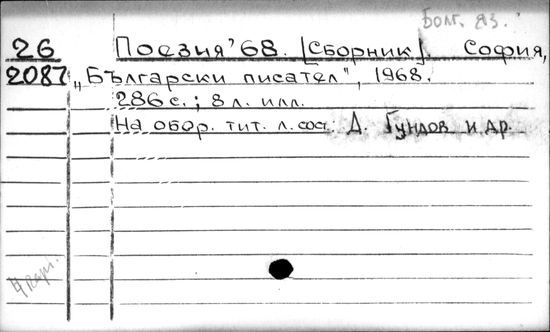 Болг. яз.
26 Поезия'68. [Сборник]. София,
2087 „Български писател", 1968.
286 с.; 8 л. илл.
На обор. тит. л. сост.: Д. Гундов и др.